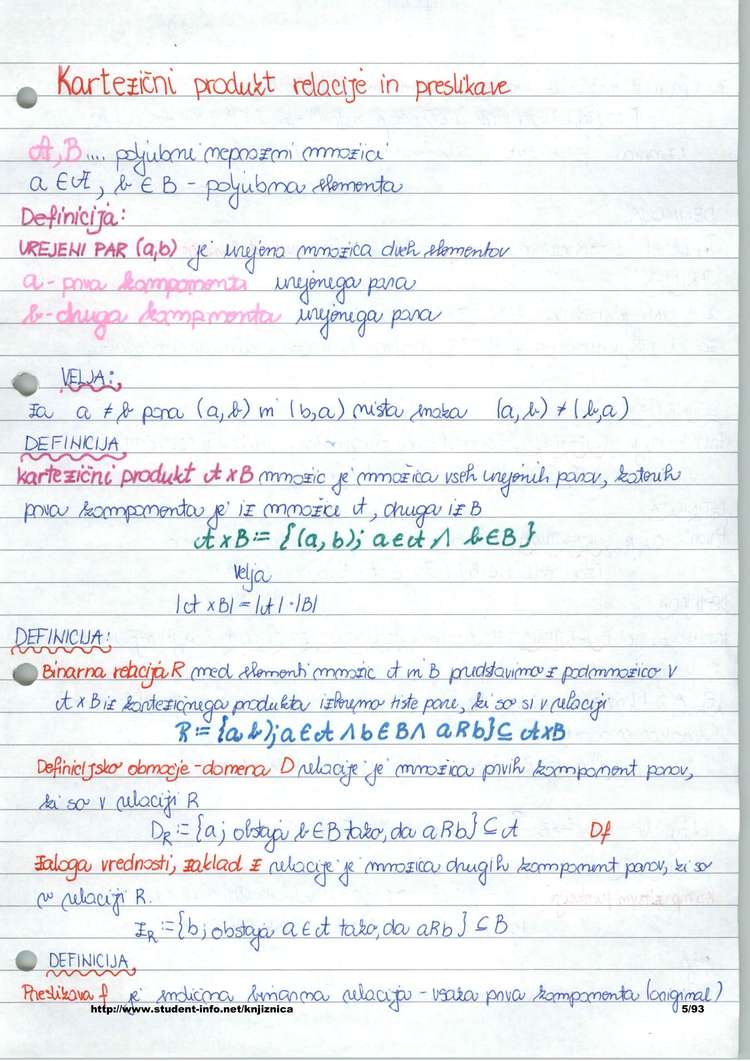 Kartezični produkt relacije in preslikave
A, B .... poljubni neprazni množici
a ∈ A, b ∈ B - poljubna elementa
Definicija:
UREJENI PAR (a,b) je urejena množica dveh elementov
a - prva komponenta urejenega para
b - druga komponenta urejenega para
VELJA:
Za a ≠ b para (a, b) in (b,a) nista enaka (a, b) ≠ (b,a)
DEFINICIJA
kartezični produkt A x B množic je množica vseh urejenih parov, katerih
prva komponenta je iz množice A, druga iz B
A x B := {(a, b); a ∈ A ∧ b ∈ B}
Velja
|A x B| = |A| · |B|
DEFINICIJA:
Binarna relacija R med elementi množic A in B predstavimo z podmnožico v
A x B iz kartezičnega produkta izberemo tiste pare, ki so si v relaciji
R := {(a, b); a ∈ A ∧ b ∈ B ∧ aRb} ⊆ A x B
Definicijsko območje - domena D relacije je množica prvih komponent parov,
ki so v relaciji R
D_R := {a; obstaja b ∈ B tako, da aRb} ⊆ A Df
Zaloga vrednosti, zaklad Z relacije je množica drugih komponent parov, ki so
v relaciji R.
Z_R := {b; obstaja a ∈ A tako, da aRb} ⊆ B
DEFINICIJA
Preslikava f je enolična binarna relacija - vsaka prva komponenta (original)
http://www.student-info.net/knjiznica 5/93